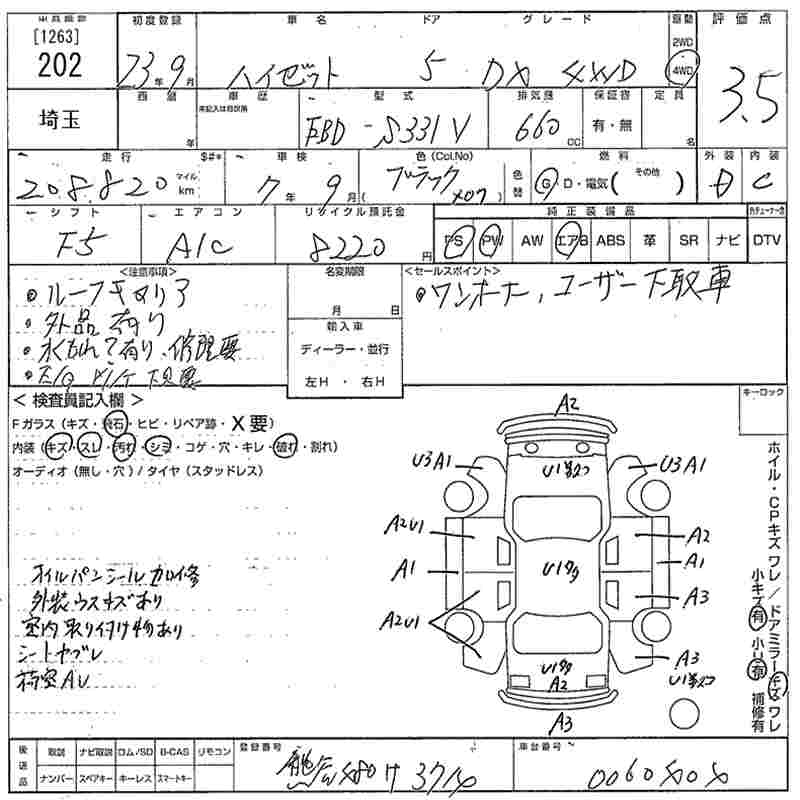 [1263]
202
初度登録
車名
ドア
グレード
駆動
評価点
23年9月
ハイゼット
5
DX 4WD
2WD
4WD
3.5
埼玉
車歴
型式
排気量
保証書
定員
未記入は自家用
年
EBD-S331V
660cc
有・無
名
走行
$#*
車検
色(Col.No)
色替
燃料
外装
内装
208,820
マイル
km
7年9月
ブラック
X07
G・D・電気( その他 )
D
C
シフト
エアコン
リサイクル預託金
純正装備品
F5
A/C
8220円
PS
PW
AW
エアB
ABS
革
SR
ナビ
DTV
<注意事項>
名変期限
<セールスポイント>
月 日
輸入車
ディーラー・並行
左H・右H
・ルーフキャリア
・外品有り
・水もれ?有り、修理要
・ワンオーナー,ユーザー下取車
キーロック
<検査員記入欄>
Fガラス(キズ・飛石・ヒビ・リペア跡・X要)
内装(キズ・スレ・汚れ・シミ・コゲ・穴・キレ・破れ・割れ)
オーディオ(無し・穴)/タイヤ(スタッドレス)
オイルパンシールカロ修
外装ウスキズあり
室内取り付け物あり
シートヤブレ
荷室AU
A2
U3A1
U3A1
A2U1
A2
A1
U1タタ
A1
A3
A2U1
U1タタ
A2
A3
A3
ホイル・CPキズワレ/ドアミラーキズワレ
小キズ有 小U有 補修有
後送品
取説
ナビ取説
ロム/SD
B-CAS
リモコン
ナンバー
スペアキー
キーレス
スマートキー
登録番号
車台番号
0060X0X